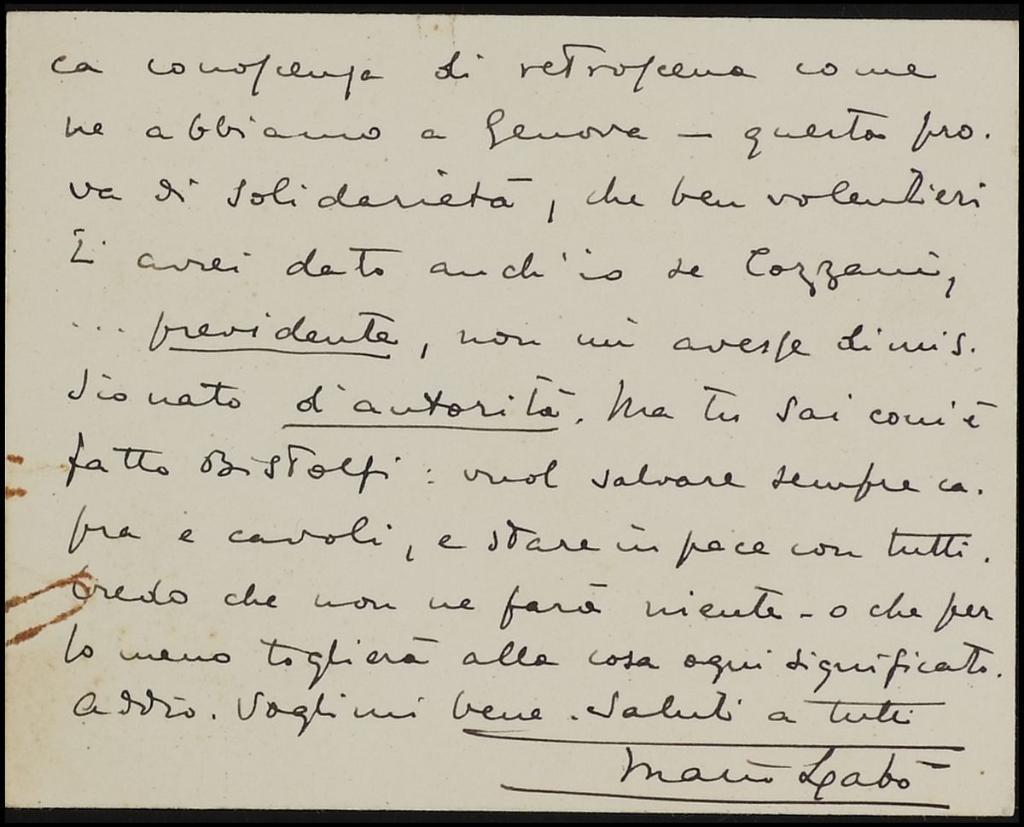 ca conoscenza di retroscena come
ne abbiamo a Genova — questa pro-
va di solidarietà, che ben volentieri
ti avrei dato anch'io se Cozzani,
... previdente, non mi avesse dimis-
sionato d'autorità. Ma tu sai com'è
fatto Bistolfi: vuol salvare sempre ca-
pra e cavoli, e stare in pace con tutti.
Credo che non ne farà niente - o che per
lo meno toglierà alla cosa ogni significato.
Addio. Voglimi bene. Saluti a tutti
Mario Labò